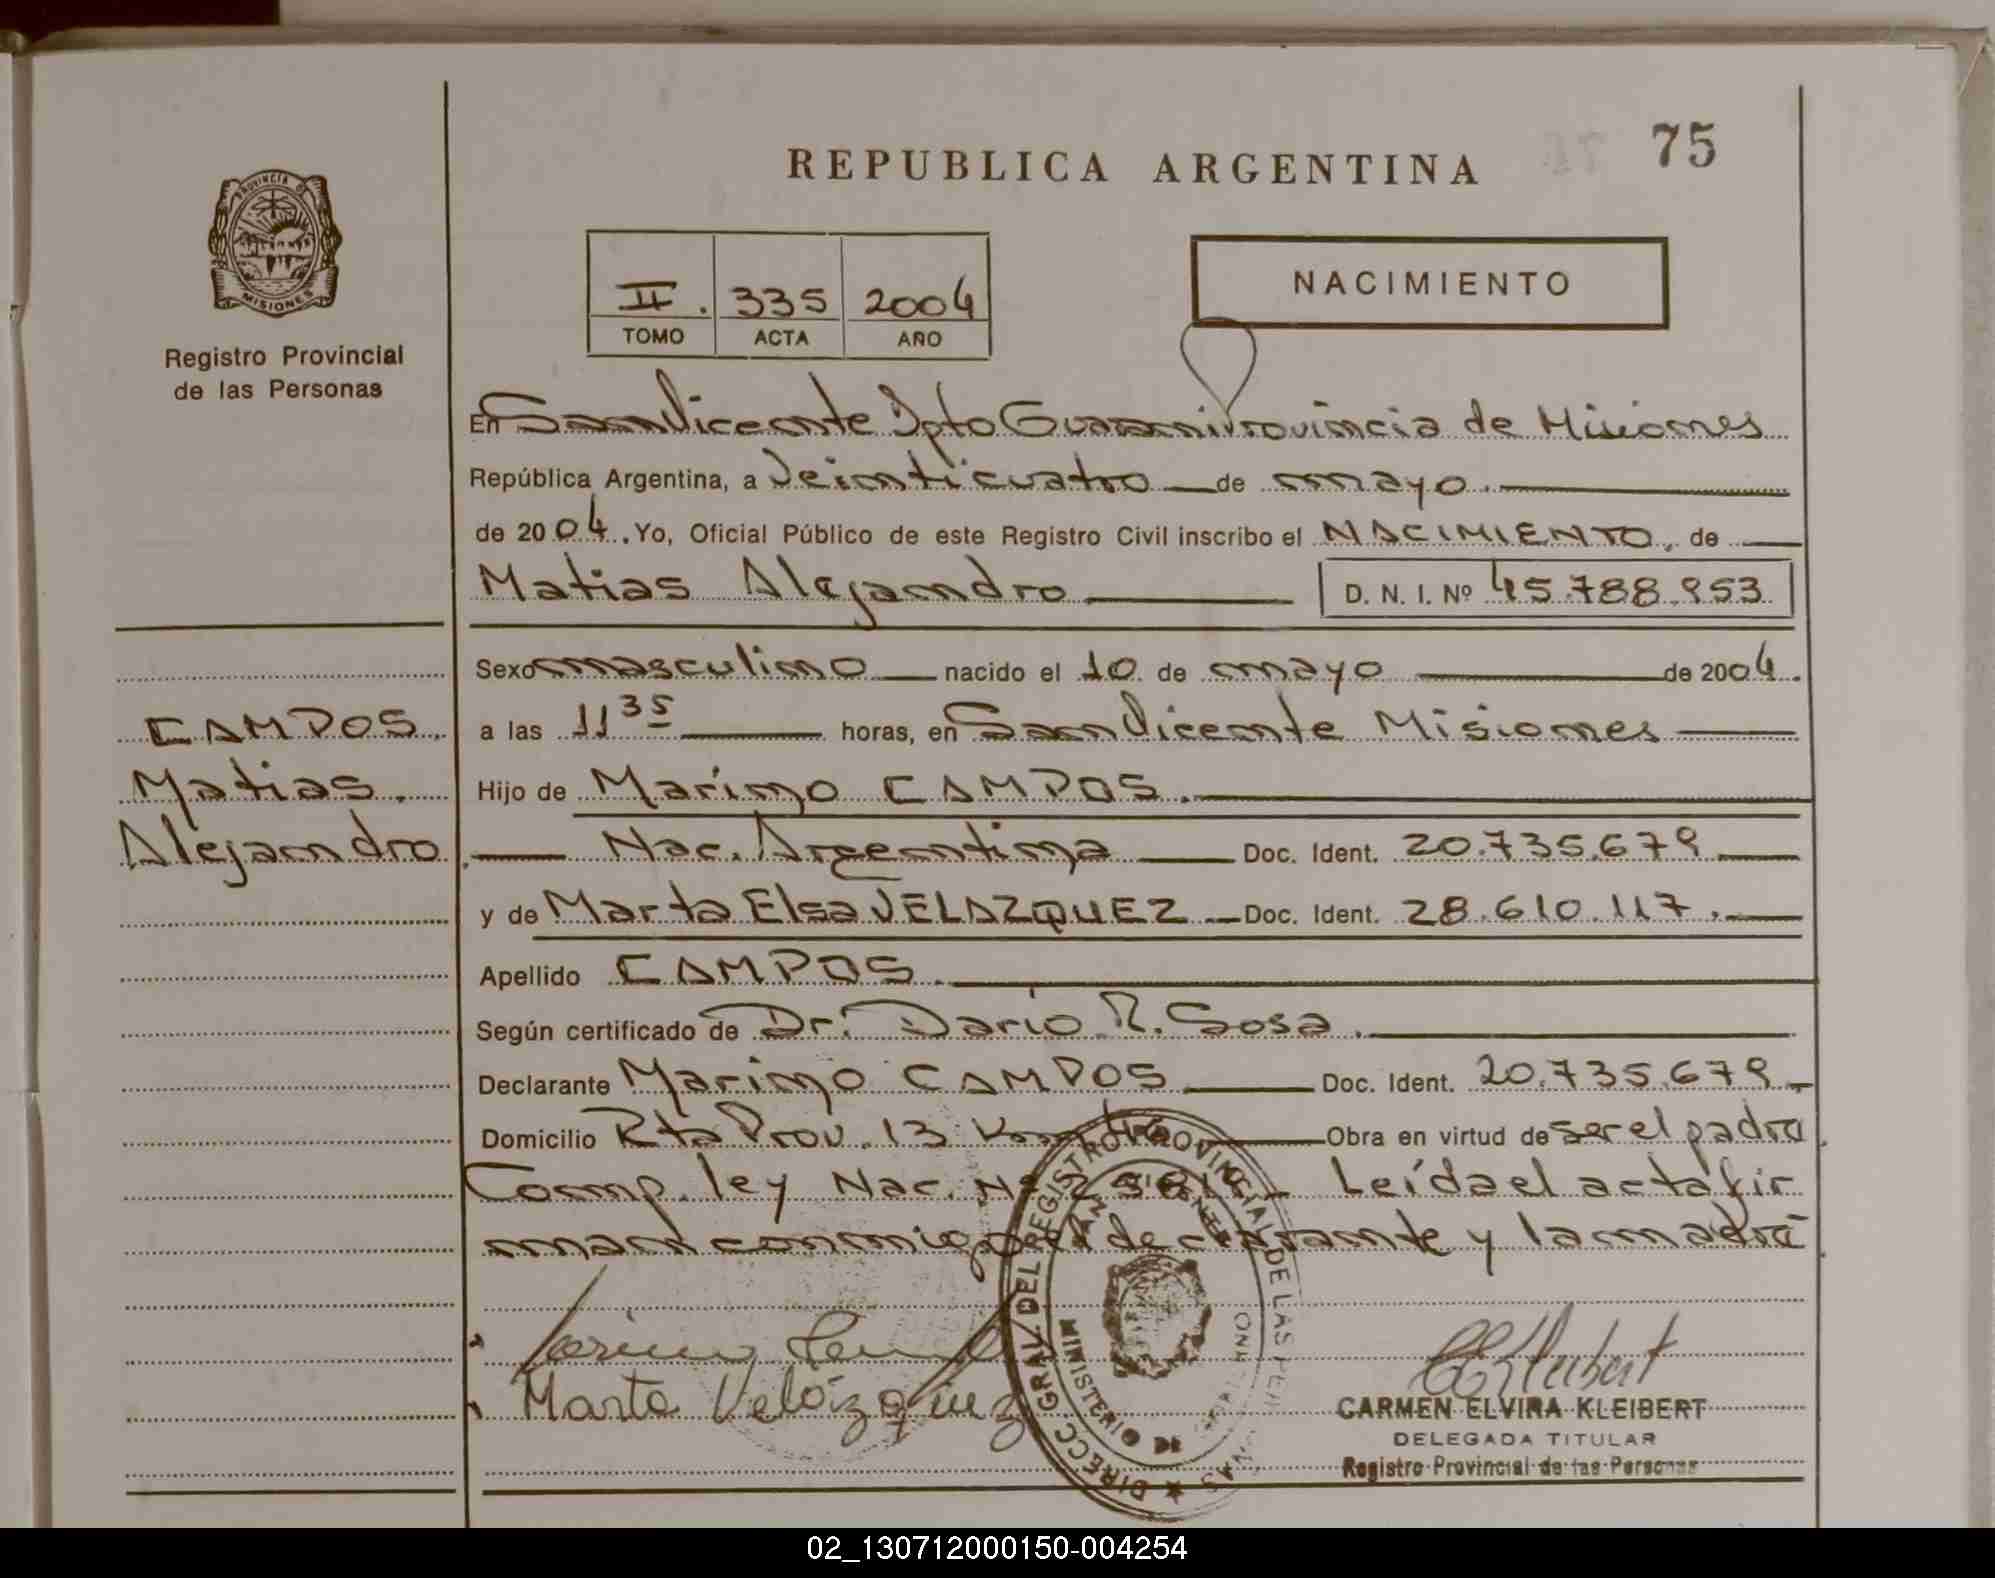 REPUBLICA ARGENTINA
75
PROVINCIA D
MISIONES
Registro Provincial
de las Personas
II. 335 2004
TOMO ACTA AÑO
NACIMIENTO
En San Vicente Dpto Guarani Provincia de Misiones
República Argentina, a Veinticuatro de mayo.
de 2004. Yo, Oficial Público de este Registro Civil inscribo el NACIMIENTO, de
Matias Alejandro D. N. I. Nº 45.788.953
Sexo masculino nacido el 10 de mayo de 2004.
CAMPOS. a las 11 35 horas, en San Vicente Misiones
Matias. Hijo de Marino CAMPOS.
Alejandro. Nac. Argentina Doc. Ident. 20.735.679
y de Marta Elsa VELAZQUEZ Doc. Ident. 28.610.117.
Apellido CAMPOS.
Según certificado de Dr. Dario R. Sosa.
Declarante Marino CAMPOS Doc. Ident. 20.735.679
Domicilio Rta Prov. 13 Km 46 Obra en virtud de ser el padre
Comp. ley Nac. Nº Leída el acta fir
man conmigo el declarante y la madre
Marta Velázquez
DIRECC GRAL DEL REGISTRO PROVINCIAL DE LAS
SAN VICENTE
MINISTERIO DE
CEKleibert
CARMEN ELVIRA KLEIBERT
DELEGADA TITULAR
Registro Provincial de las Personas
02_130712000150-004254